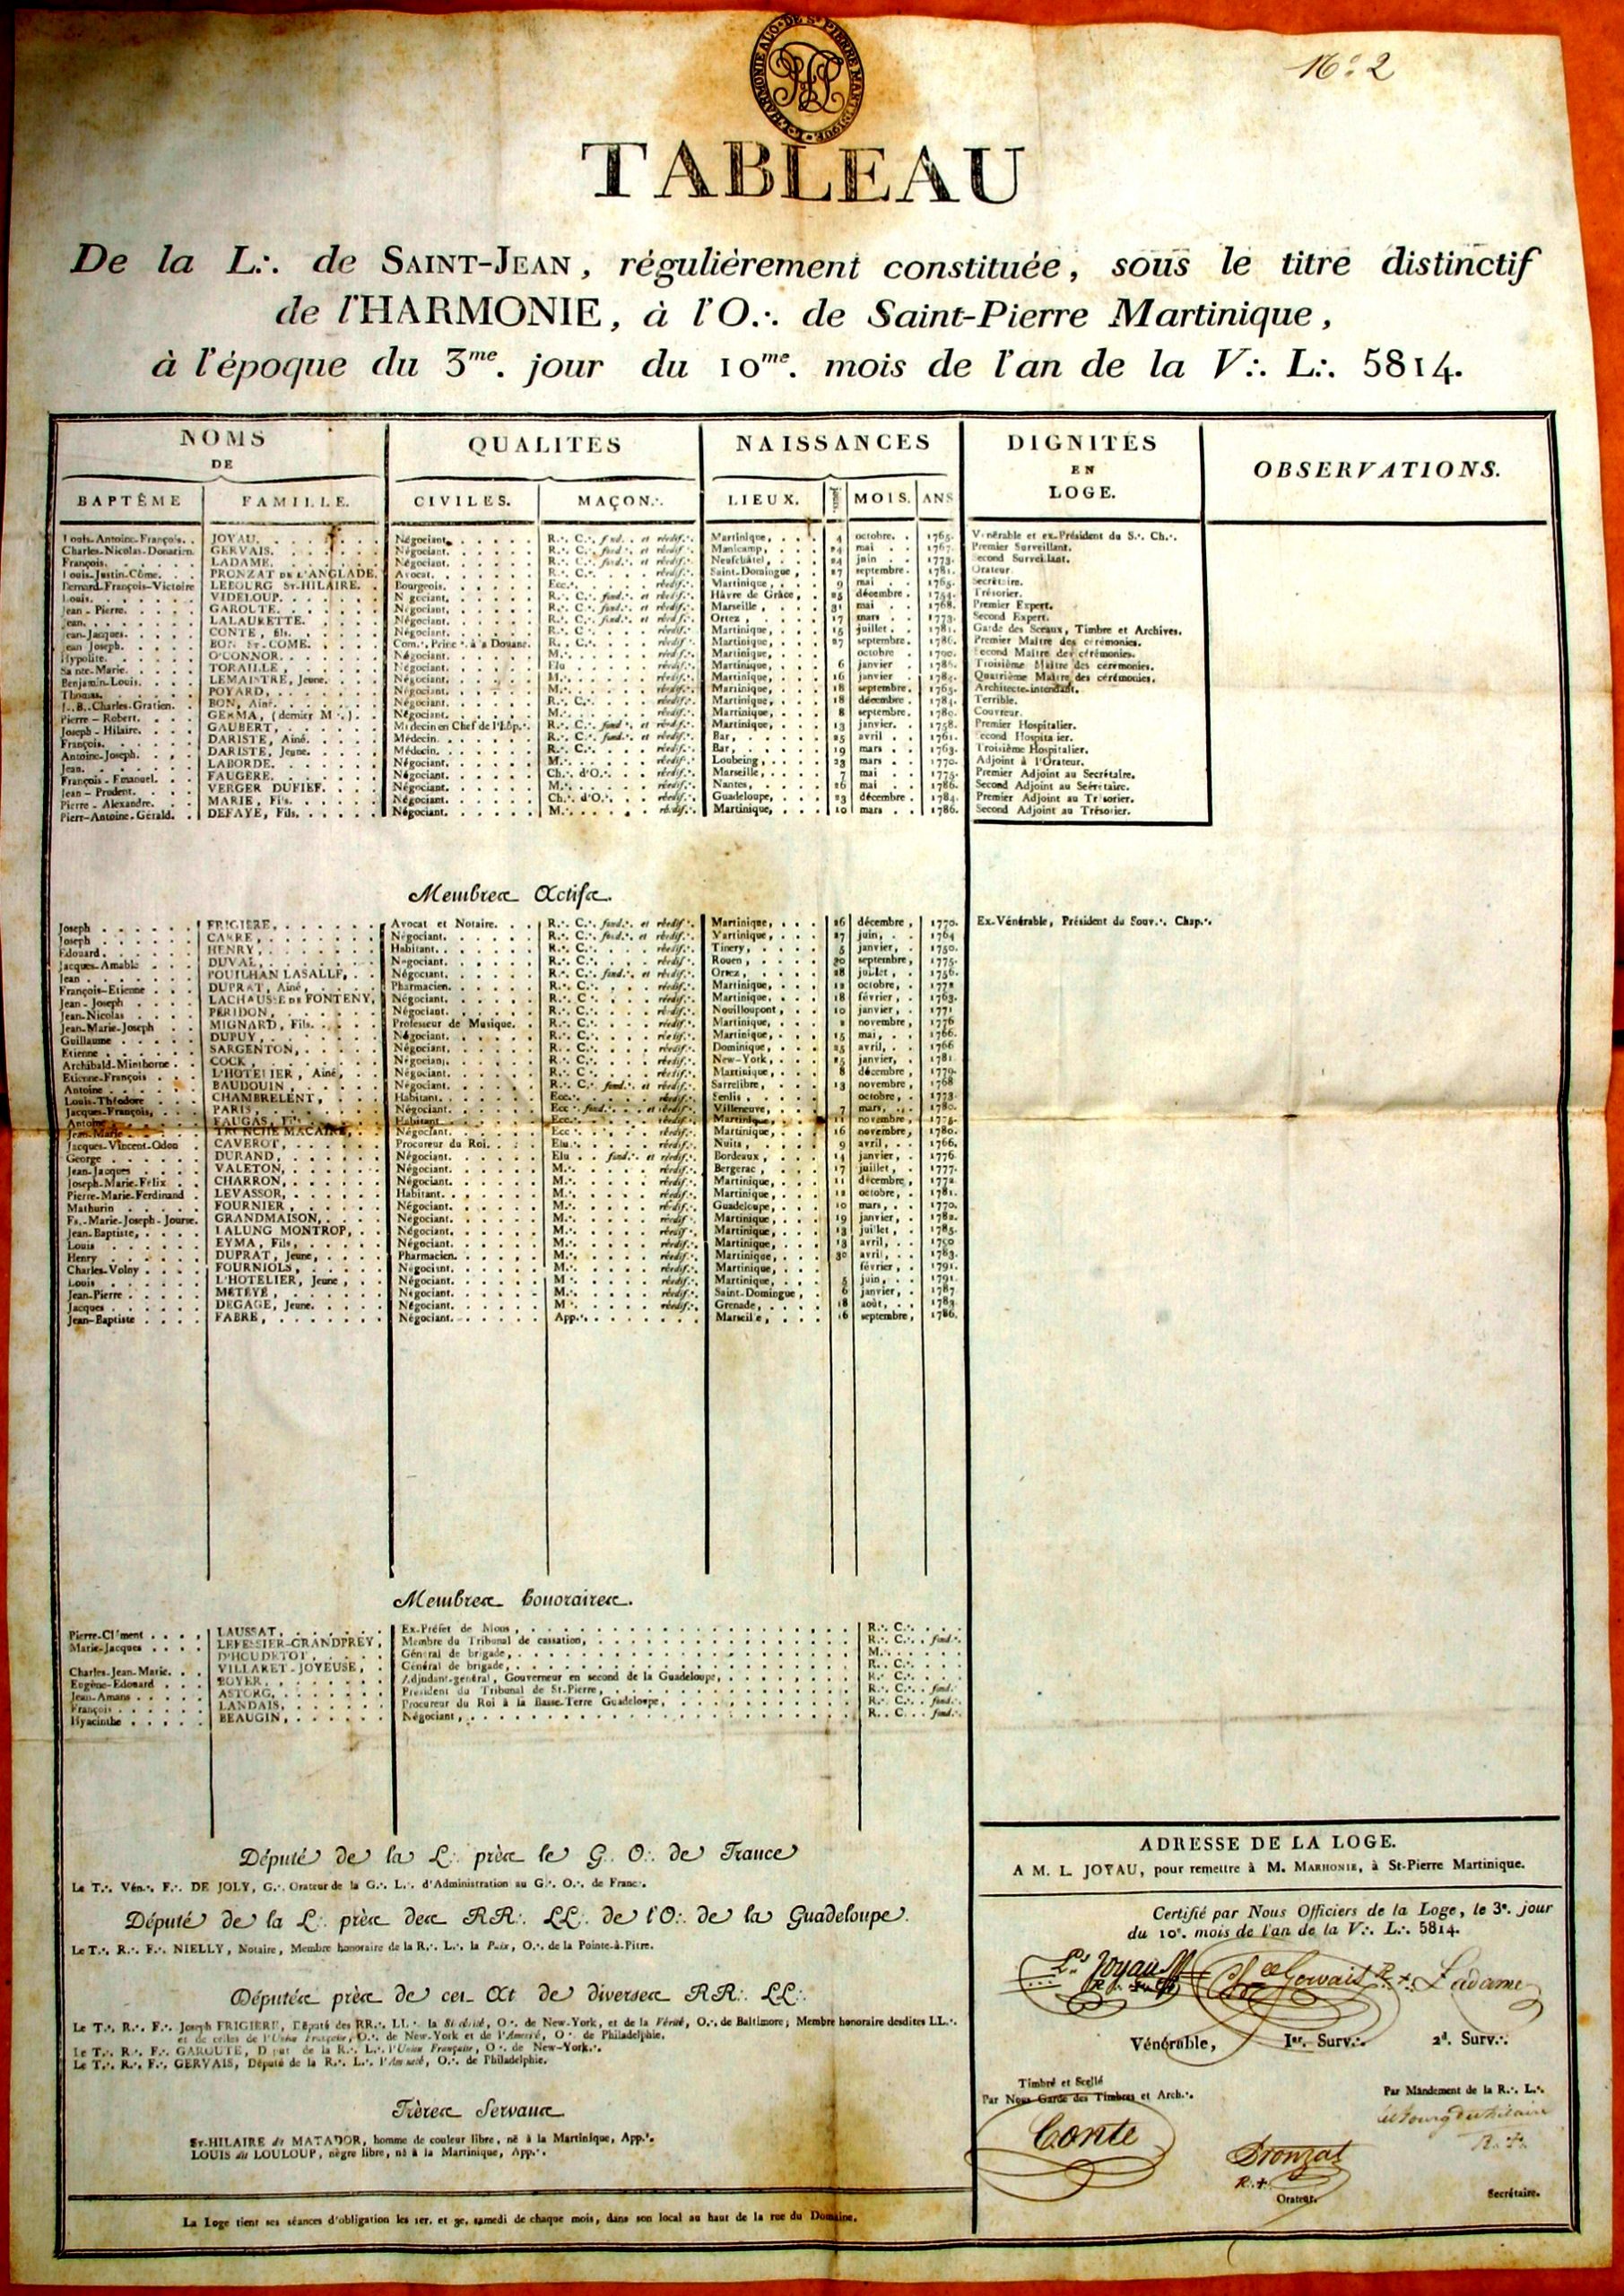 L'HARMONIE A L'O. DE St. PIERRE MARTINIQUE
No. 2
TABLEAU
De la L∴ de SAINT-JEAN, régulièrement constituée, sous le titre distinctif
de l'HARMONIE, à l'O∴ de Saint-Pierre Martinique,
à l'époque du 3me. jour du 10me. mois de l'an de la V∴ L∴ 5814.
NOMS QUALITÉS NAISSANCES DIGNITÉS
DE EN OBSERVATIONS.
BAPTÊME FAMILLE. CIVILES. MAÇON∴ LIEUX. MOIS. ANS LOGE.
Louis-Antoine-François. JOYAU. Négociant. R∴ C∴ fond∴ et réédif∴ Martinique, 4 octobre. 1765. Vénérable et ex-Président du S∴ Ch∴
Charles-Nicolas-Donatien. GERVAIS. Négociant. R∴ C∴ fond∴ et réédif∴ Manicamp, 24 mai 1767. Premier Surveillant.
François. LADAME. Négociant. R∴ C∴ fond∴ et réédif∴ Neufchâtel, 24 juin 1773. Second Surveillant.
Louis-Justin-Côme. PRONZAT DE L'ANGLADE. Avocat. R∴ C∴ réédif∴ Saint-Domingue, 27 septembre. 1781. Orateur.
Bernard-François-Victoire LEBOURG St-HILAIRE. Bourgeois. Ecc∴ réédif∴ Martinique, 9 mai 1765. Secrétaire.
Louis. VIDELOUP. Négociant. R∴ C∴ fond∴ et réédif∴ Hâvre de Grâce, 25 décembre. 1754. Trésorier.
Jean-Pierre. GAROUTE. Négociant. R∴ C∴ fond∴ et réédif∴ Marseille, 31 mai 1768. Premier Expert.
Jean. LALAURETTE. Négociant. R∴ C∴ fond∴ et réédif∴ Ortez, 17 mars 1773. Second Expert.
Jean-Jacques. CONTE, fils. Négociant. R∴ C∴ réédif∴ Martinique, 15 juillet. 1781. Garde des Sceaux, Timbre et Archives.
Jean Joseph. BON St-COME. Com∴ Princ∴ à la Douane. R∴ C∴ réédif∴ Martinique, 27 septembre. 1780. Premier Maître des cérémonies.
Hypolite. O'CONNOR. Négociant. M∴ réédif∴ Martinique, octobre 1790. Second Maître des cérémonies.
Sainte-Marie. TORAILLE, Négociant. Elu réédif∴ Martinique, 6 janvier Troisième Maître des cérémonies.
Benjamin-Louis. LEMAISTRE, Jeune. Négociant. M∴ réédif∴ Martinique, 16 janvier Quatrième Maître des cérémonies.
Thomas. POYARD, Négociant. M∴ réédif∴ Martinique, 18 septembre. 1765. Architecte-intendant.
J.-B.-Charles-Gratien. BON, Ainé. Négociant. R∴ C∴ réédif∴ Martinique, 18 décembre. 1784. Terrible.
Pierre-Robert. GEMMA, (dernier M∴). Négociant. M∴ réédif∴ Martinique, 8 septembre. 1780. Couvreur.
Joseph-Hilaire. GAUBERT, Médecin en Chef de l'Hôp∴ R∴ C∴ fond∴ et réédif∴ Martinique, 13 janvier. 1758. Premier Hospitalier.
François. DARISTE, Ainé. Médecin. R∴ C∴ fond∴ et réédif∴ Bar, 25 avril 1761. Second Hospitalier.
Antoine-Joseph. DARISTE, Jeune. Médecin. R∴ C∴ réédif∴ Bar, 19 mars 1763. Troisième Hospitalier.
Jean. LABORDE. Négociant. M∴ réédif∴ Loubeing, 23 mars 1770. Adjoint à l'Orateur.
François-Emanuel. FAUGERE. Négociant. Ch∴ d'O∴ réédif∴ Marseille, 7 mai 1775. Premier Adjoint au Secrétaire.
Jean-Prudent. VERGER DUFIEF. Négociant. M∴ réédif∴ Nantes, 26 mai 1786. Second Adjoint au Secrétaire.
Pierre-Alexandre. MARIE, Fils. Négociant. Ch∴ d'O∴ réédif∴ Guadeloupe, 23 décembre 1784. Premier Adjoint au Trésorier.
Pierr-Antoine-Gérald. DEFAYE, Fils. Négociant. M∴ réédif∴ Martinique, 10 mars 1786. Second Adjoint au Trésorier.
Membres Actifs.
Joseph FRIGIERE, Avocat et Notaire. R∴ C∴ fond∴ et réédif∴ Martinique, 26 décembre, 1770. Ex-Vénérable, Président du Souv∴ Chap∴
Joseph CARRE, Négociant. R∴ C∴ fond∴ et réédif∴ Martinique, 27 juin, 1764
Edouard. HENRY, Habitant. R∴ C∴ réédif∴ Tinery, 5 janvier, 1750.
Jacques-Amable DUVAL, Négociant. R∴ C∴ réédif∴ Rouen, 20 septembre, 1775.
Jean POUILHAN LASALLE, Négociant. R∴ C∴ fond∴ et réédif∴ Ortez, 28 juillet, 1756.
François-Etienne DUPRAT, Ainé, Pharmacien. R∴ C∴ réédif∴ Martinique, 12 octobre, 1772
Jean-Joseph LACHAUSSE DE FONTENY, Négociant. R∴ C∴ réédif∴ Martinique, 18 février, 1763.
Jean-Nicolas PERIDON, Négociant. R∴ C∴ réédif∴ Nouilloupont, 10 janvier, 1771
Jean-Marie-Joseph MIGNARD, Fils. Professeur de Musique. R∴ C∴ réédif∴ Martinique, novembre, 1776
Guillaume DUPUY, Négociant. R∴ C∴ réédif∴ Martinique, 15 mai, 1766.
Etienne SARGENTON, Négociant. R∴ C∴ réédif∴ Dominique, 25 avril, 1766
Archibald-Minthorne COCK, Négociant. R∴ C∴ réédif∴ New-York, 25 janvier, 1781
Etienne-François L'HOTELIER, Ainé, Négociant. R∴ C∴ réédif∴ Martinique, 8 décembre, 1779.
Antoine BAUDOUIN, Négociant. R∴ C∴ fond∴ et réédif∴ Sarrelibre, 13 novembre, 1768
Louis-Théodore CHAMBRELENT, Habitant. Ecc∴ réédif∴ Senlis, octobre, 1773.
Jacques-François, PARIS, Négociant. Ecc∴ fond∴ et réédif∴ Villeneuve, 7 mars, 1780.
Antoine FAUGAS, Fils Habitant. Ecc∴ réédif∴ Martinique, 11 novembre,
Jean-Marie TRUNCHE MACAIRE, Négociant. Ecc∴ réédif∴ Martinique, 16 novembre, 1780.
Jacques-Vincent-Odon CAVEROT, Procureur du Roi. Elu∴ réédif∴ Nuits, 9 avril, 1766,
George DURAND, Négociant. Elu fond∴ et réédif∴ Bordeaux, 14 janvier, 1776
Jean-Jacques VALETON, Négociant. M∴ réédif∴ Bergerac, 17 juillet, 1777.
Joseph-Marie-Félix CHARRON, Négociant. M∴ réédif∴ Martinique, 11 décembre, 1772
Pierre-Marie-Ferdinand LEVASSOR, Habitant. M∴ réédif∴ Martinique, 12 octobre, 1781.
Mathurin FOURNIER, Négociant. M∴ réédif∴ Guadeloupe, 10 mars, 1770.
Fs.-Marie-Joseph-Jourse. GRANDMAISON, Négociant. M∴ réédif∴ Martinique, 19 janvier, 1782.
Jean-Baptiste, LALUNG MONTROP, Négociant. M∴ réédif∴ Martinique, 13 juillet, 1785.
Louis EYMA, Fils, Négociant. M∴ réédif∴ Martinique, 13 avril, 1750
Henry DUPRAT, Jeune, Pharmacien. M∴ réédif∴ Martinique, 30 avril, 1783.
Charles-Volny FOURNIOLS, Négociant M∴ réédif∴ Martinique, février, 1791.
Louis L'HOTELIER, Jeune, Négociant. M∴ réédif∴ Martinique, 5 juin, 1791
Jean-Pierre METEYE, Négociant. M∴ réédif∴ Saint-Domingue, 6 janvier, 1787
Jacques DEGAGE, Jeune. Négociant. M∴ réédif∴ Grenade, 18 août, 1783
Jean-Baptiste FABRE, Négociant. App∴ Marseille, 16 septembre, 1786.
Membres honoraires.
Pierre-Clément LAUSSAT, Ex-Préfet de Mons, R∴ C∴
Marie-Jacques LEFESSIER-GRANDPREY, Membre du Tribunal de cassation, R∴ C∴ fond∴
D'HOUDETOT, Général de brigade, M∴
Charles-Jean-Marie. VILLARET-JOYEUSE, Général de brigade, R∴ C∴
Eugène-Edouard BOYER, Adjudant-général, Gouverneur en second de la Guadeloupe, R∴ C∴
Jean-Amans ASTORG, Président du Tribunal de St-Pierre, R∴ C∴ fond.
François LANDAIS, Procureur du Roi à la Basse-Terre Guadeloupe, R∴ C∴ fond∴
Hyacinthe BEAUGIN, Négociant, R∴ C∴ fond∴
Député de la L∴ près le G∴ O∴ de France
Le T∴ Vén∴ F∴ DE JOLY, G∴ Orateur de la G∴ L∴ d'Administration au G∴ O∴ de France.
Député de la L∴ près des RR∴ LL∴ de l'O∴ de la Guadeloupe.
Le T∴ R∴ F∴ NIELLY, Notaire, Membre honoraire de la R∴ L∴ la Paix, O∴ de la Pointe-à-Pitre.
Députés près de cet At de diverses RR∴ LL∴
Le T∴ R∴ F∴ Joseph FRIGIERE, Député des RR∴ LL∴ la Sincérité, O∴ de New-York, et de la Vérité, O∴ de Baltimore; Membre honoraire desdites LL∴
et de celles de l'Union Française, O∴ de New-York et de l'Aménité, O∴ de Philadelphie.
Le T∴ R∴ F∴ GAROUTE, Député de la R∴ L∴ l'Union Française, O∴ de New-York∴
Le T∴ R∴ F∴ GERVAIS, Député de la R∴ L∴ l'Aménité, O∴ de Philadelphie.
Frères Servans
St-HILAIRE dit MATADOR, homme de couleur libre, né à la Martinique, App∴
LOUIS dit LOULOUP, nègre libre, né à la Martinique, App∴
La Loge tient ses séances d'obligation les 1er. et 3e. samedi de chaque mois, dans son local au haut de la rue du Domaine.
ADRESSE DE LA LOGE.
A M. L. JOYAU, pour remettre à M. MARHONIE, à St-Pierre Martinique.
Certifié par Nous Officiers de la Loge, le 3e. jour
du 10e. mois de l'an de la V∴ L∴ 5814.
Ls Joyau Gervais R+ Ladame
Vénérable, 1er. Surv∴ 2d. Surv∴
Timbré et Scellé
Par Nous Garde des Timbres et Arch∴
Par Mandement de la R∴ L∴
Conte
Lebourg St hilaire
Pronzat
R.+
Orateur.
Secrétaire.